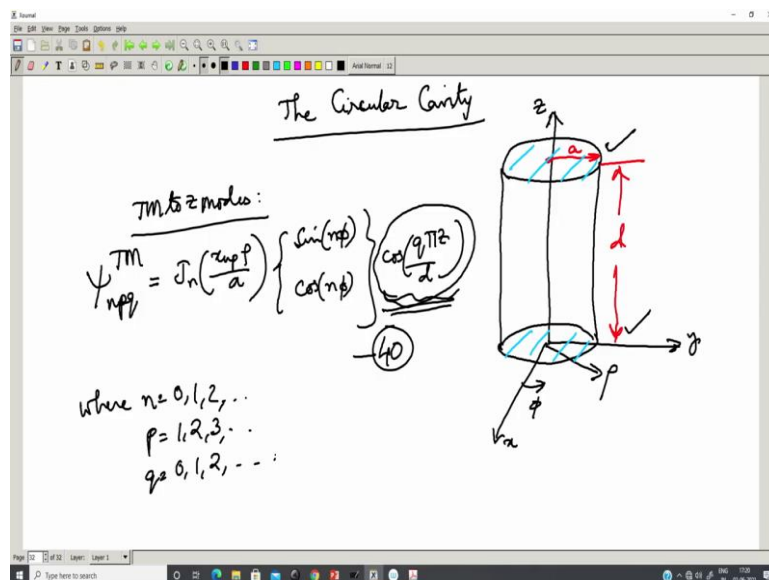 Xournal
File Edit View Page Tools Options Help
Arial Normal 12
The Circular Cavity
TM to z modes:
ψ_{npq}^{TM} = J_n(x_{np}ρ/a) { sin(nϕ) cos(nϕ) } cos(qπz/d)
— 40
where n = 0, 1, 2, ..
p = 1, 2, 3, ..
q = 0, 1, 2, - - - .
z
a
d
y
ρ
ϕ
x
Page 32 of 32 Layer: Layer 1
Type here to search
ENG 17:20
IN